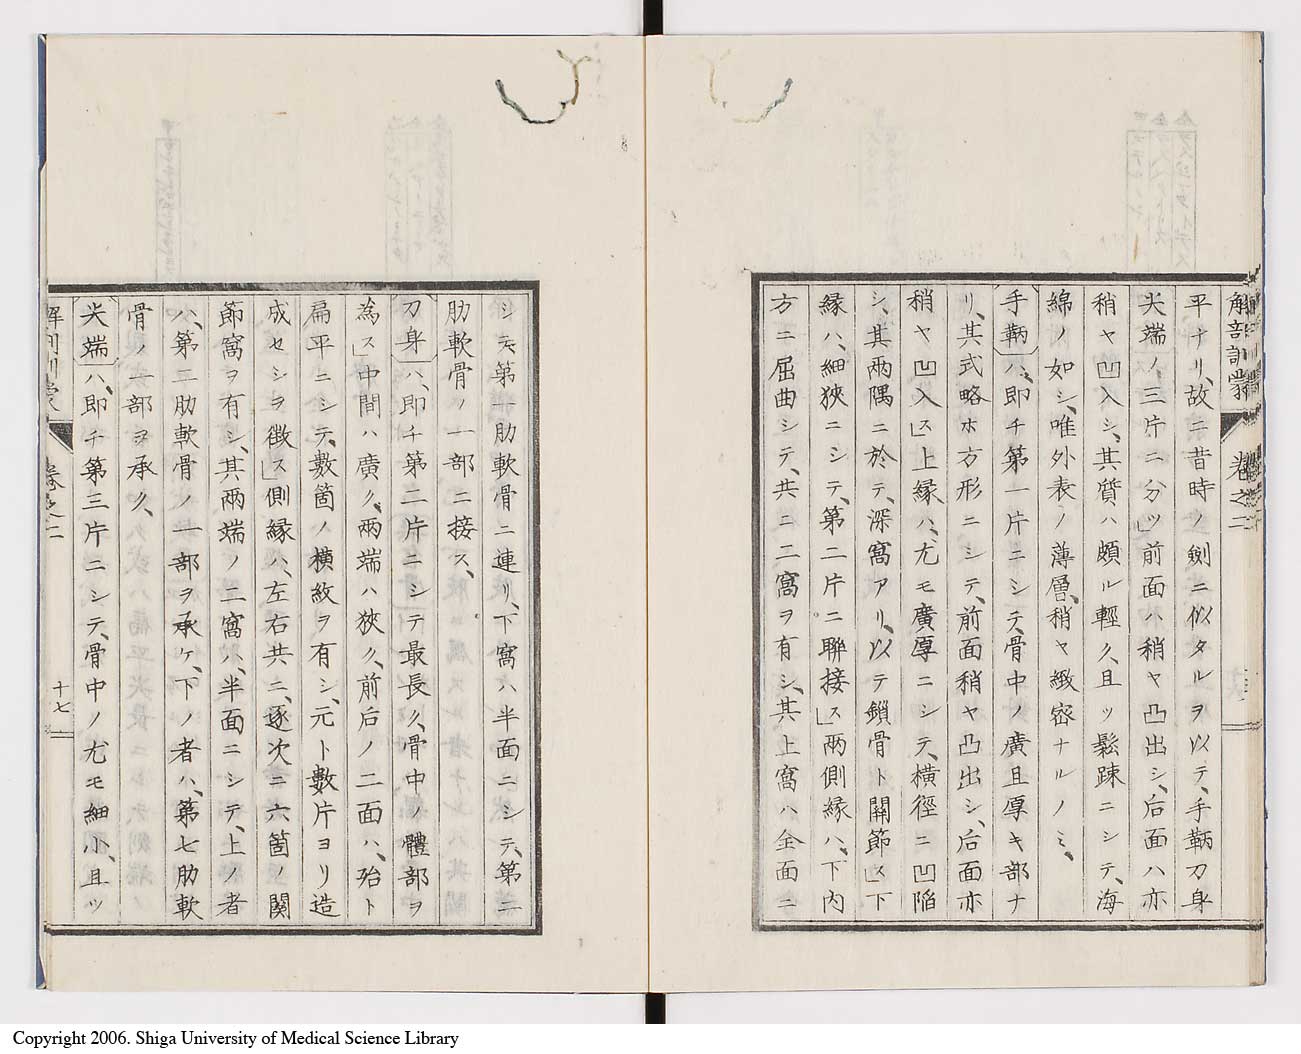 解剖訓蒙 卷之二
平ナリ、故ニ昔時ノ劍ニ似タルヲ以テ、手鞆刀身
尖端ノ、三片ニ分ツ」前面ハ稍ヤ凸出シ、后面ハ亦
稍ヤ凹入シ、其質ハ頗ル輕ク、且ツ鬆踈ニシテ、海
綿ノ如シ、唯外表ノ薄層、稍ヤ緻密ナルノミ、
手鞆ハ、即チ第一片ニシテ、骨中ノ廣且厚キ部ナ
リ、其式略ホ方形ニシテ、前面稍ヤ凸出シ、后面亦
稍ヤ凹入ス」上縁ハ、尤モ廣厚ニシテ、横徑ニ凹陷
シ、其兩隅ニ於テ、深窩アリ、以テ鎖骨ト關節ス」下
縁ハ、細狹ニシテ、第二片ニ聯接ス」兩側縁ハ、下内
方ニ屈曲シテ、共ニ二窩ヲ有シ、其上窩ハ、全面ニ
シテ、第一肋軟骨ニ連リ、下窩ハ半面ニシテ、第二
肋軟骨ノ一部ニ接ス、
刀身ハ、即チ第二片ニシテ最長ク、骨中ノ體部ヲ
為ス」中間ハ廣ク、兩端ハ狹ク、前后ノ二面ハ、殆ト
扁平ニシテ、數箇ノ横紋ヲ有シ、元ト數片ヨリ造
成セシヲ徴ス」側縁ハ、左右共ニ、逐次ニ六箇ノ関
節窩ヲ有シ、其兩端ノ二窩ハ、半面ニシテ、上ノ者
ハ、第二肋軟骨ノ一部ヲ承ケ、下ノ者ハ、第七肋軟
骨ノ一部ヲ承ク、
尖端ハ、即チ第三片ニシテ、骨中ノ尤モ細小、且ツ
卷之二 十七
Copyright 2006. Shiga University of Medical Science Library